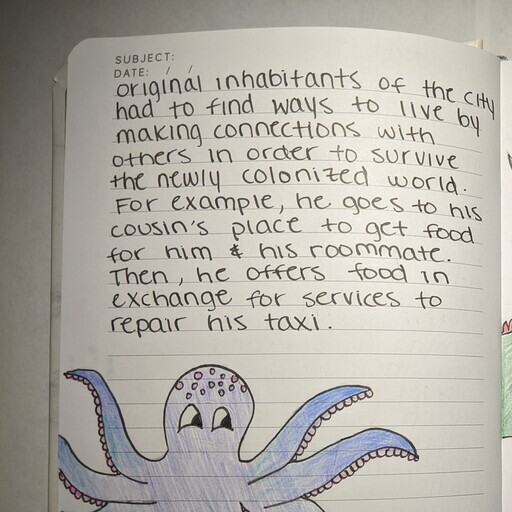 SUBJECT:
DATE: / /
original inhabitants of the city
had to find ways to live by
making connections with
others in order to survive
the newly colonized world.
For example, he goes to his
cousin's place to get food
for him & his roommate.
Then, he offers food in
exchange for services to
repair his taxi.